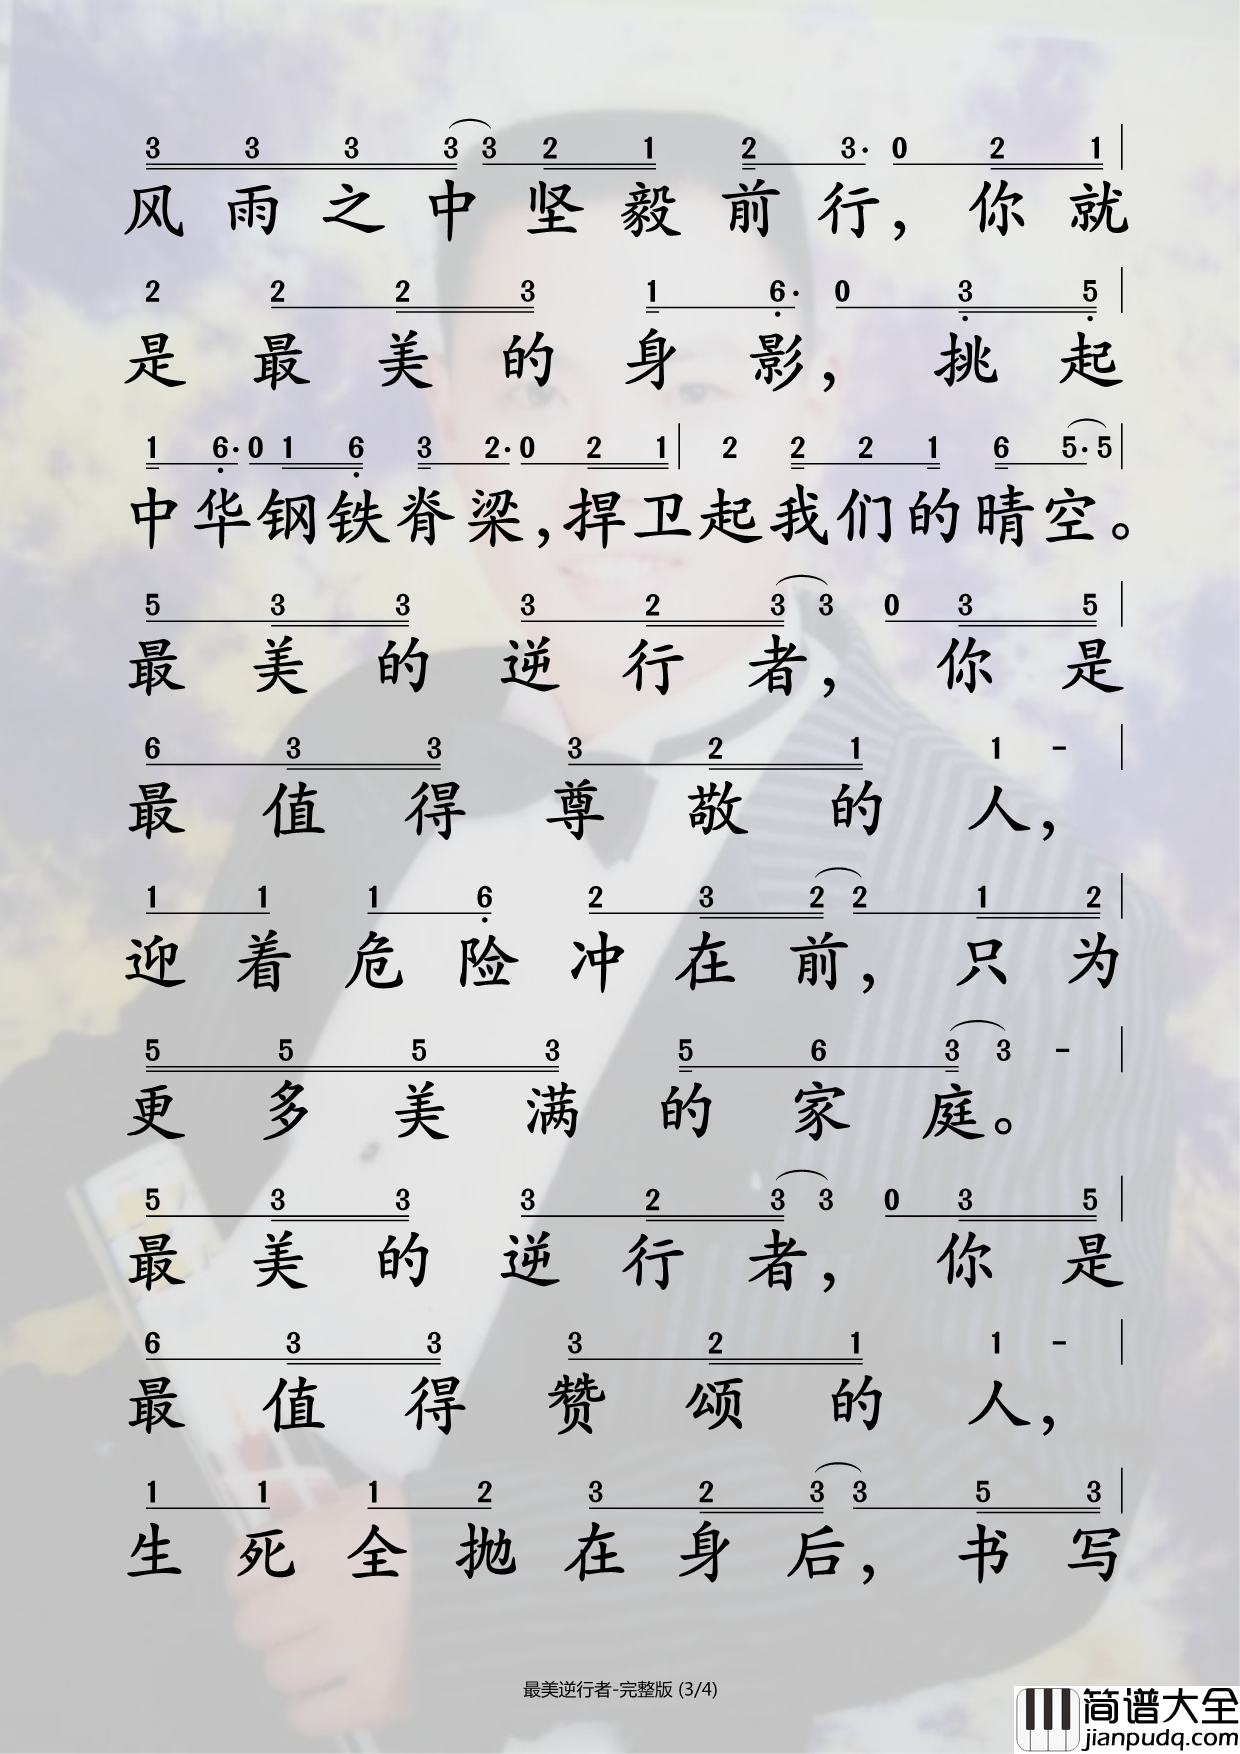 3 3 3 3 3 2 1 2 3· 0 2 1
风雨之中坚毅前行，你就
2 2 2 3 1 6· 0 3 5
是最美的身影，挑起
1 6· 0 1 6 3 2· 0 2 1 | 2 2 2 1 6 5· 5
中华钢铁脊梁，捍卫起我们的晴空。
5 3 3 3 2 3 3 0 3 5
最美的逆行者，你是
6 3 3 3 2 1 1 -
最值得尊敬的人，
1 1 1 6 2 3 2 2 1 2
迎着危险冲在前，只为
5 5 5 3 5 6 3 3 -
更多美满的家庭。
5 3 3 3 2 3 3 0 3 5
最美的逆行者，你是
6 3 3 3 2 1 1 -
最值得赞颂的人，
1 1 1 2 3 2 3 3 5 3
生死全抛在身后，书写
最美逆行者-完整版 (3/4)
简谱大全
jianpudq.com